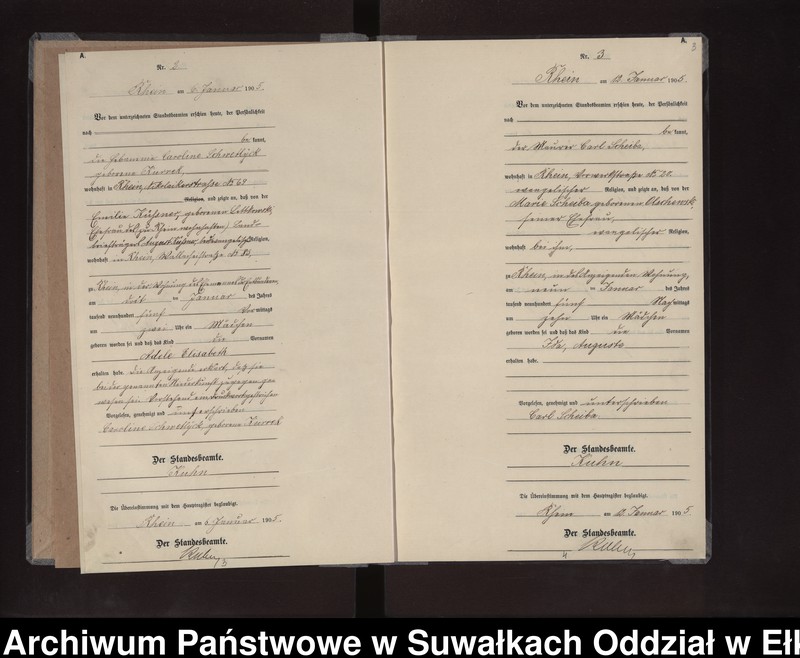 A.
Nr. 2
Rhein am 6. Januar 1905.
Vor dem unterzeichneten Standesbeamten erschien heute, der Persönlichkeit
nach
be kannt,
die Hebamme Caroline
geborene Kurrek,
wohnhaft in Rhein, Nikolaikerstraße № 69
Religion, und zeigte an, daß von der
Emilie geborenen
Ehefrau des zu Rhein wohnhaften
August Religion,
wohnhaft in Rhein, № 13,
zu Rhein, in der Wohnung
am drei ten Januar des Jahres
tausend neunhundert fünf Vor mittags
um zwei Uhr ein Mädchen
geboren worden sei und daß das Kind die Vornamen
Adele Elisabeth
erhalten habe. Die Anzeigende erklärt, daß sie
bei der genannten Niederkunft zugegen ge
wesen sei. Vorstehend ein Druckwort gestrichen
Vorgelesen, genehmigt und unterschrieben
Caroline geborene Kurrek
Der Standesbeamte.
Kuhn
Die Übereinstimmung mit dem Hauptregister beglaubigt.
Rhein am 6. Januar 1905.
Der Standesbeamte.
Kuhn
A.
3
Nr. 3
Rhein am 10. Januar 1905.
Vor dem unterzeichneten Standesbeamten erschien heute, der Persönlichkeit
nach
be kannt,
der Maurer Carl Scheiba,
wohnhaft in Rhein, Vorwerkstraße № 20
evangelischer Religion, und zeigte an, daß von der
Marie Scheiba, geborenen Olschewski,
seiner Ehefrau,
evangelischer Religion,
wohnhaft bei ihm,
zu Rhein, in des Anzeigenden Wohnung,
am neun ten Januar des Jahres
tausend neunhundert fünf Nach mittags
um zehn Uhr ein Mädchen
geboren worden sei und daß das Kind die Vornamen
Ida, Auguste
erhalten habe.
Vorgelesen, genehmigt und unterschrieben
Carl Scheiba
Der Standesbeamte.
Kuhn
Die Übereinstimmung mit dem Hauptregister beglaubigt.
Rhein am 10. Januar 1905
Der Standesbeamte.
Kuhn
Archiwum Państwowe w Suwałkach Oddział w Ełk